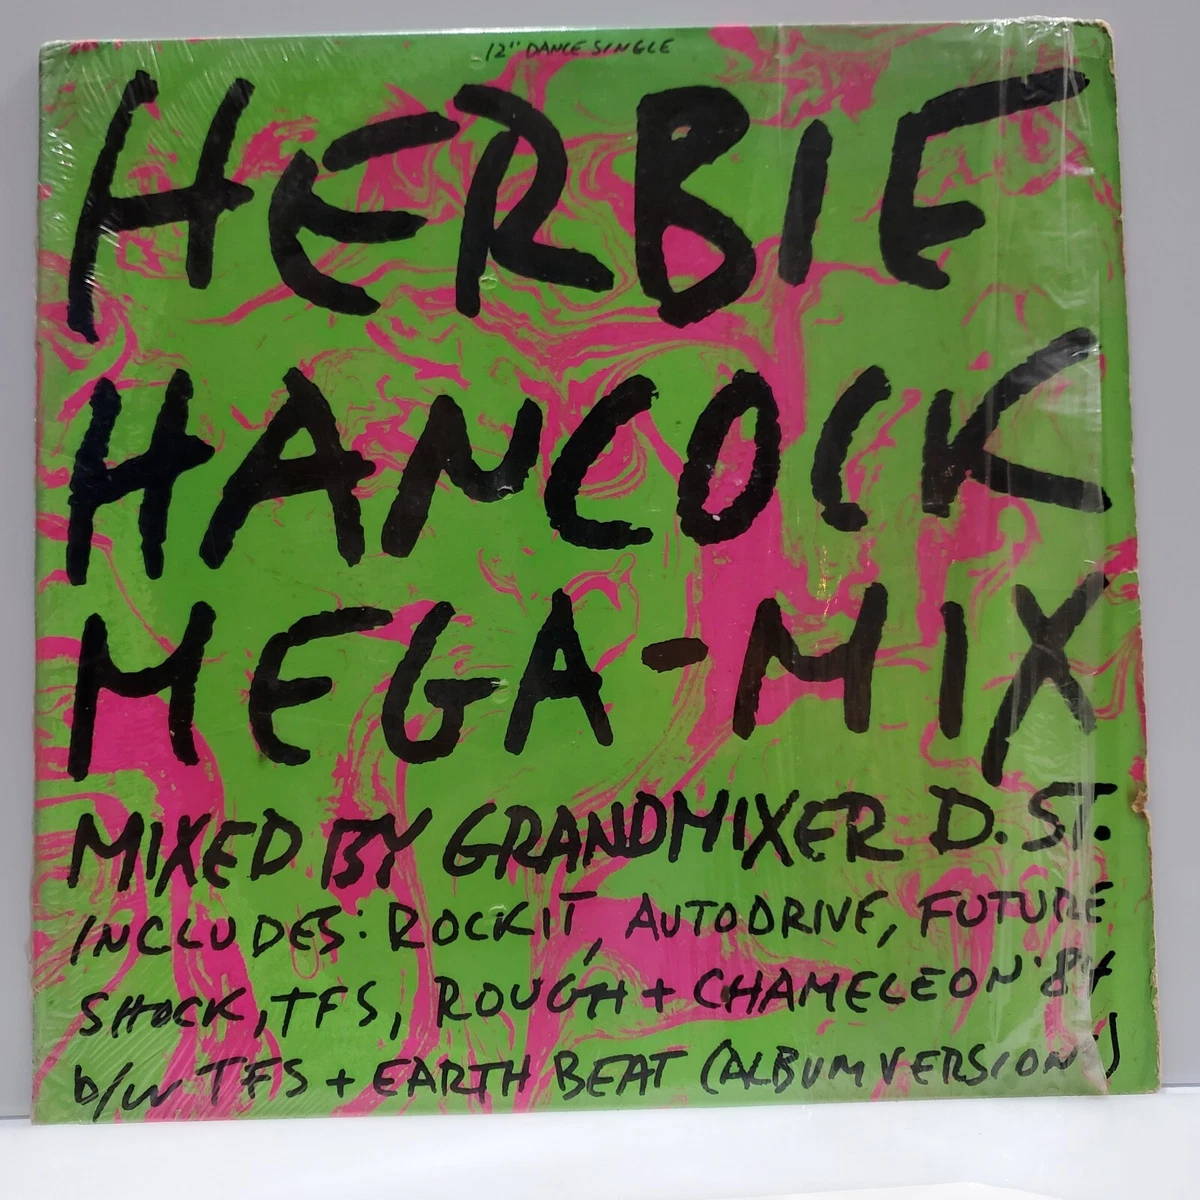 12" DANCE SINGLE
HERBIE
HANCOCK
MEGA-MIX
MIXED BY GRANDMIXER D.ST.
INCLUDES: ROCKIT, AUTODRIVE, FUTURE
SHOCK, TFS, ROUGH + CHAMELEON '84
b/w TFS + EARTH BEAT (ALBUM VERSIONS)